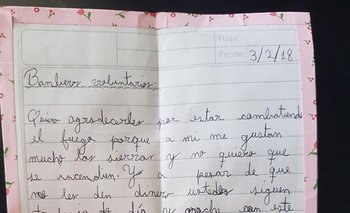 Hoja:
Fecha: 3/2/18
Bomberos voluntarios:
Quiero agradecerles por estar combatiendo
el fuego porque a mi me gustan
mucho las sierras y no quiero que
se incendien. Y a pesar de que
no les den dinero ustedes siguen
de día y noche con este